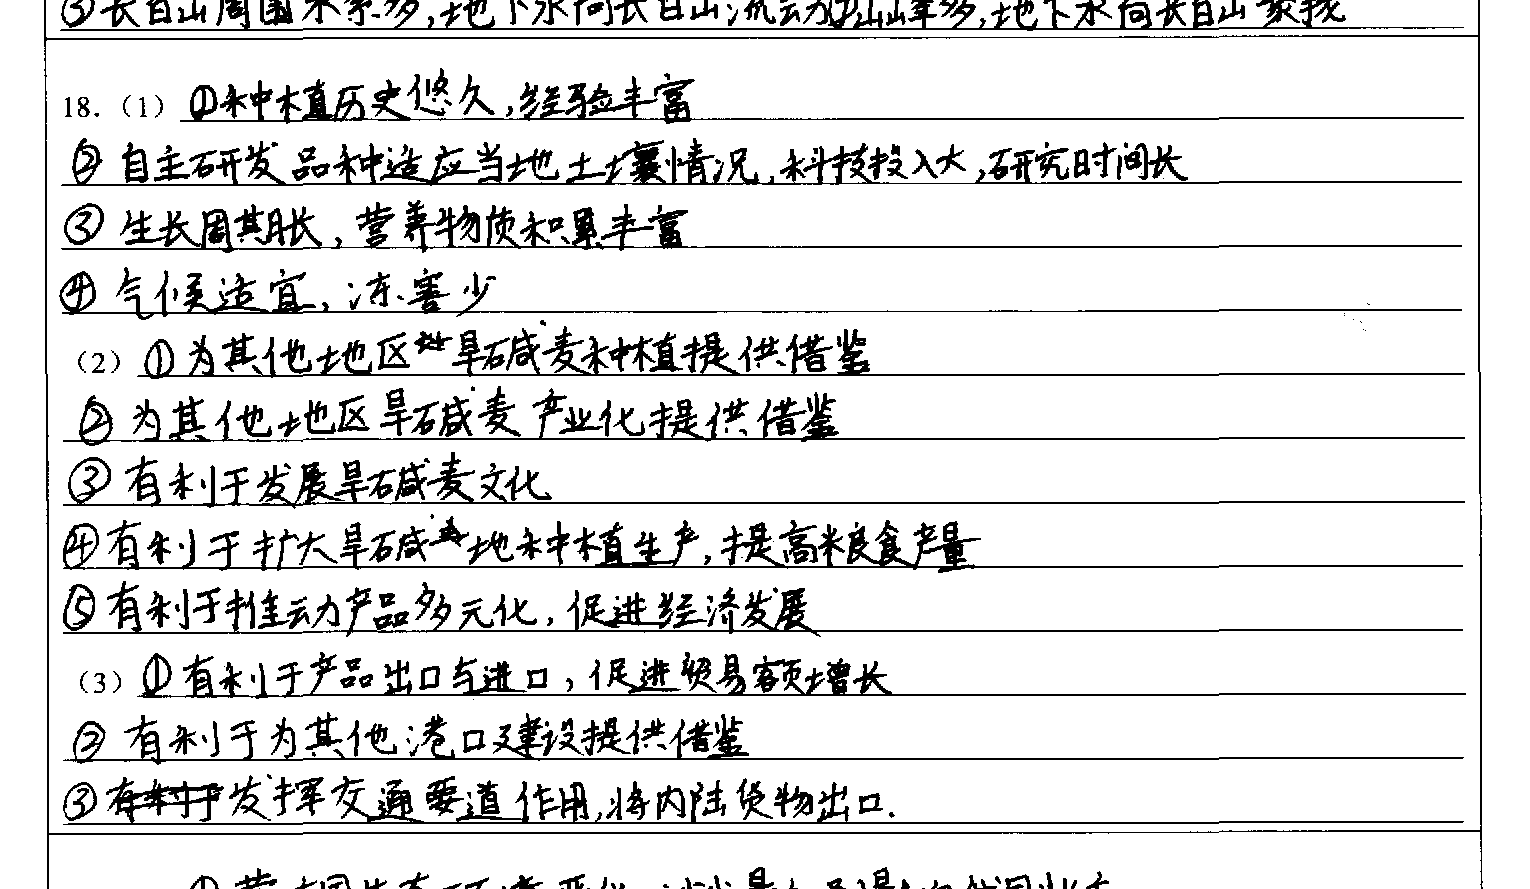 ③长白山周围水系多,地下水向长白山流动
18.（1）①种植历史悠久,经验丰富
② 自主研发品种适应当地土壤情况,科技投入大,研究时间长
③ 生长周期长,营养物质积累丰富
④ 气候适宜,冻害少
（2）①为其他地区旱碱麦种植提供借鉴
② 为其他地区旱碱麦产业化提供借鉴
③ 有利于发展旱碱麦文化
④有利于扩大旱碱地种植生产,提高粮食产量
⑤有利于推动产品多元化,促进经济发展
（3）①有利于产品出口与进口,促进贸易额增长
② 有利于为其他港口建设提供借鉴
③发挥交通要道作用,将内陆货物出口.